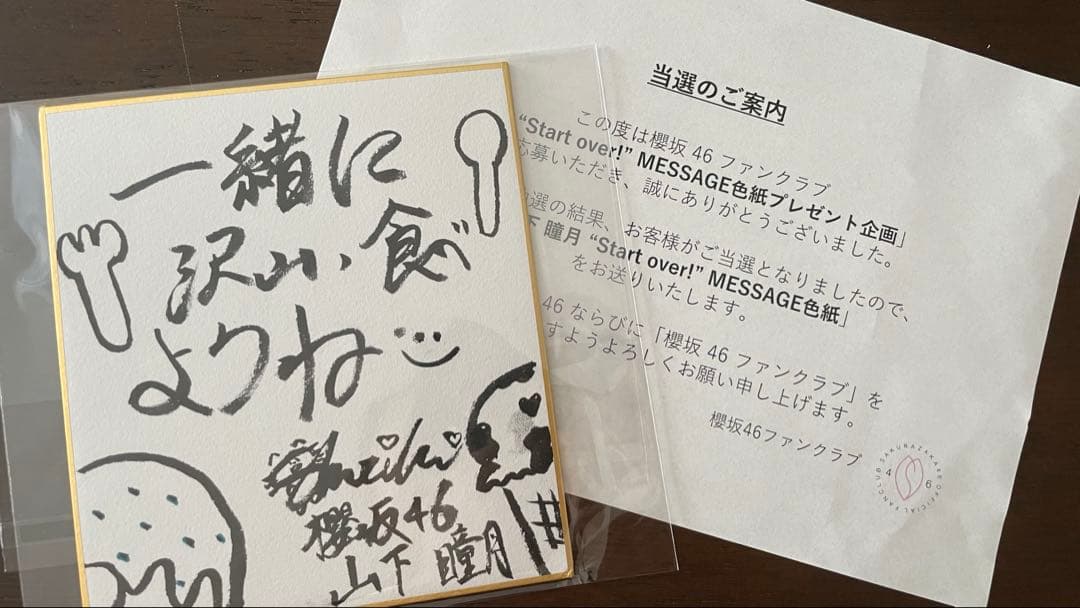 一緒に
沢山、食べ
ようね
櫻坂46
山下 瞳月
当選のご案内
この度は櫻坂 46 ファンクラブ
“Start over!” MESSAGE色紙プレゼント企画」
応募いただき、誠にありがとうございました。
選の結果、お客様がご当選となりましたので、
下 瞳月 “Start over!” MESSAGE色紙」
をお送りいたします。
46 ならびに「櫻坂 46 ファンクラブ」を
すようよろしくお願い申し上げます。
櫻坂46ファンクラブ
SAKURAZAKA46 OFFICIAL FANCLUB
4 6